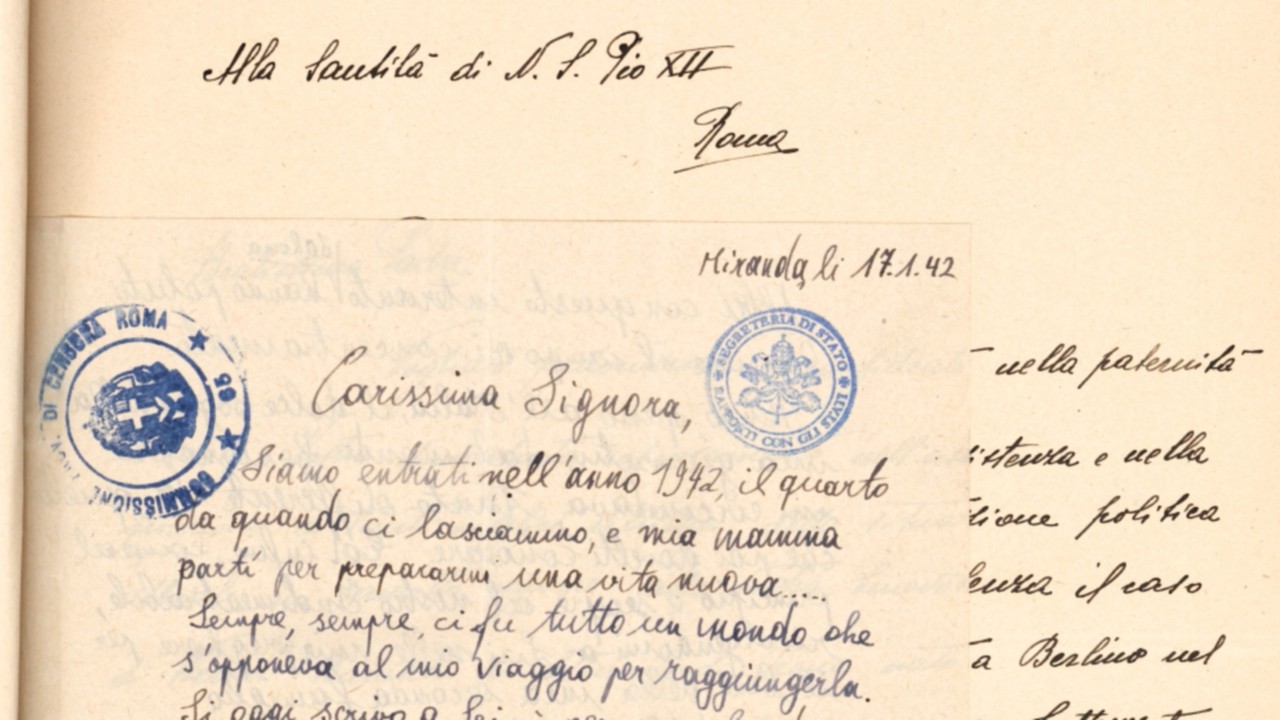 Alla Santità di N. S. Pio XII
Roma
Miranda, li 17.1.42
COMMISSIONE DI CENSURA ROMA
SEGRETERIA DI STATO
RAPPORTI CON GLI STATI
Carissima Signora,
Siamo entrati nell'anno 1942, il quarto
da quando ci lasciammo, e mia mamma
partì per prepararmi una vita nuova.....
Sempre, sempre, ci fu tutto un mondo che
s'opponeva al mio viaggio per raggiungerla.
Si oggi scrivo a Lei
nella paternità
istenza e nella
zione politica
enza il caso
a Berlino nel